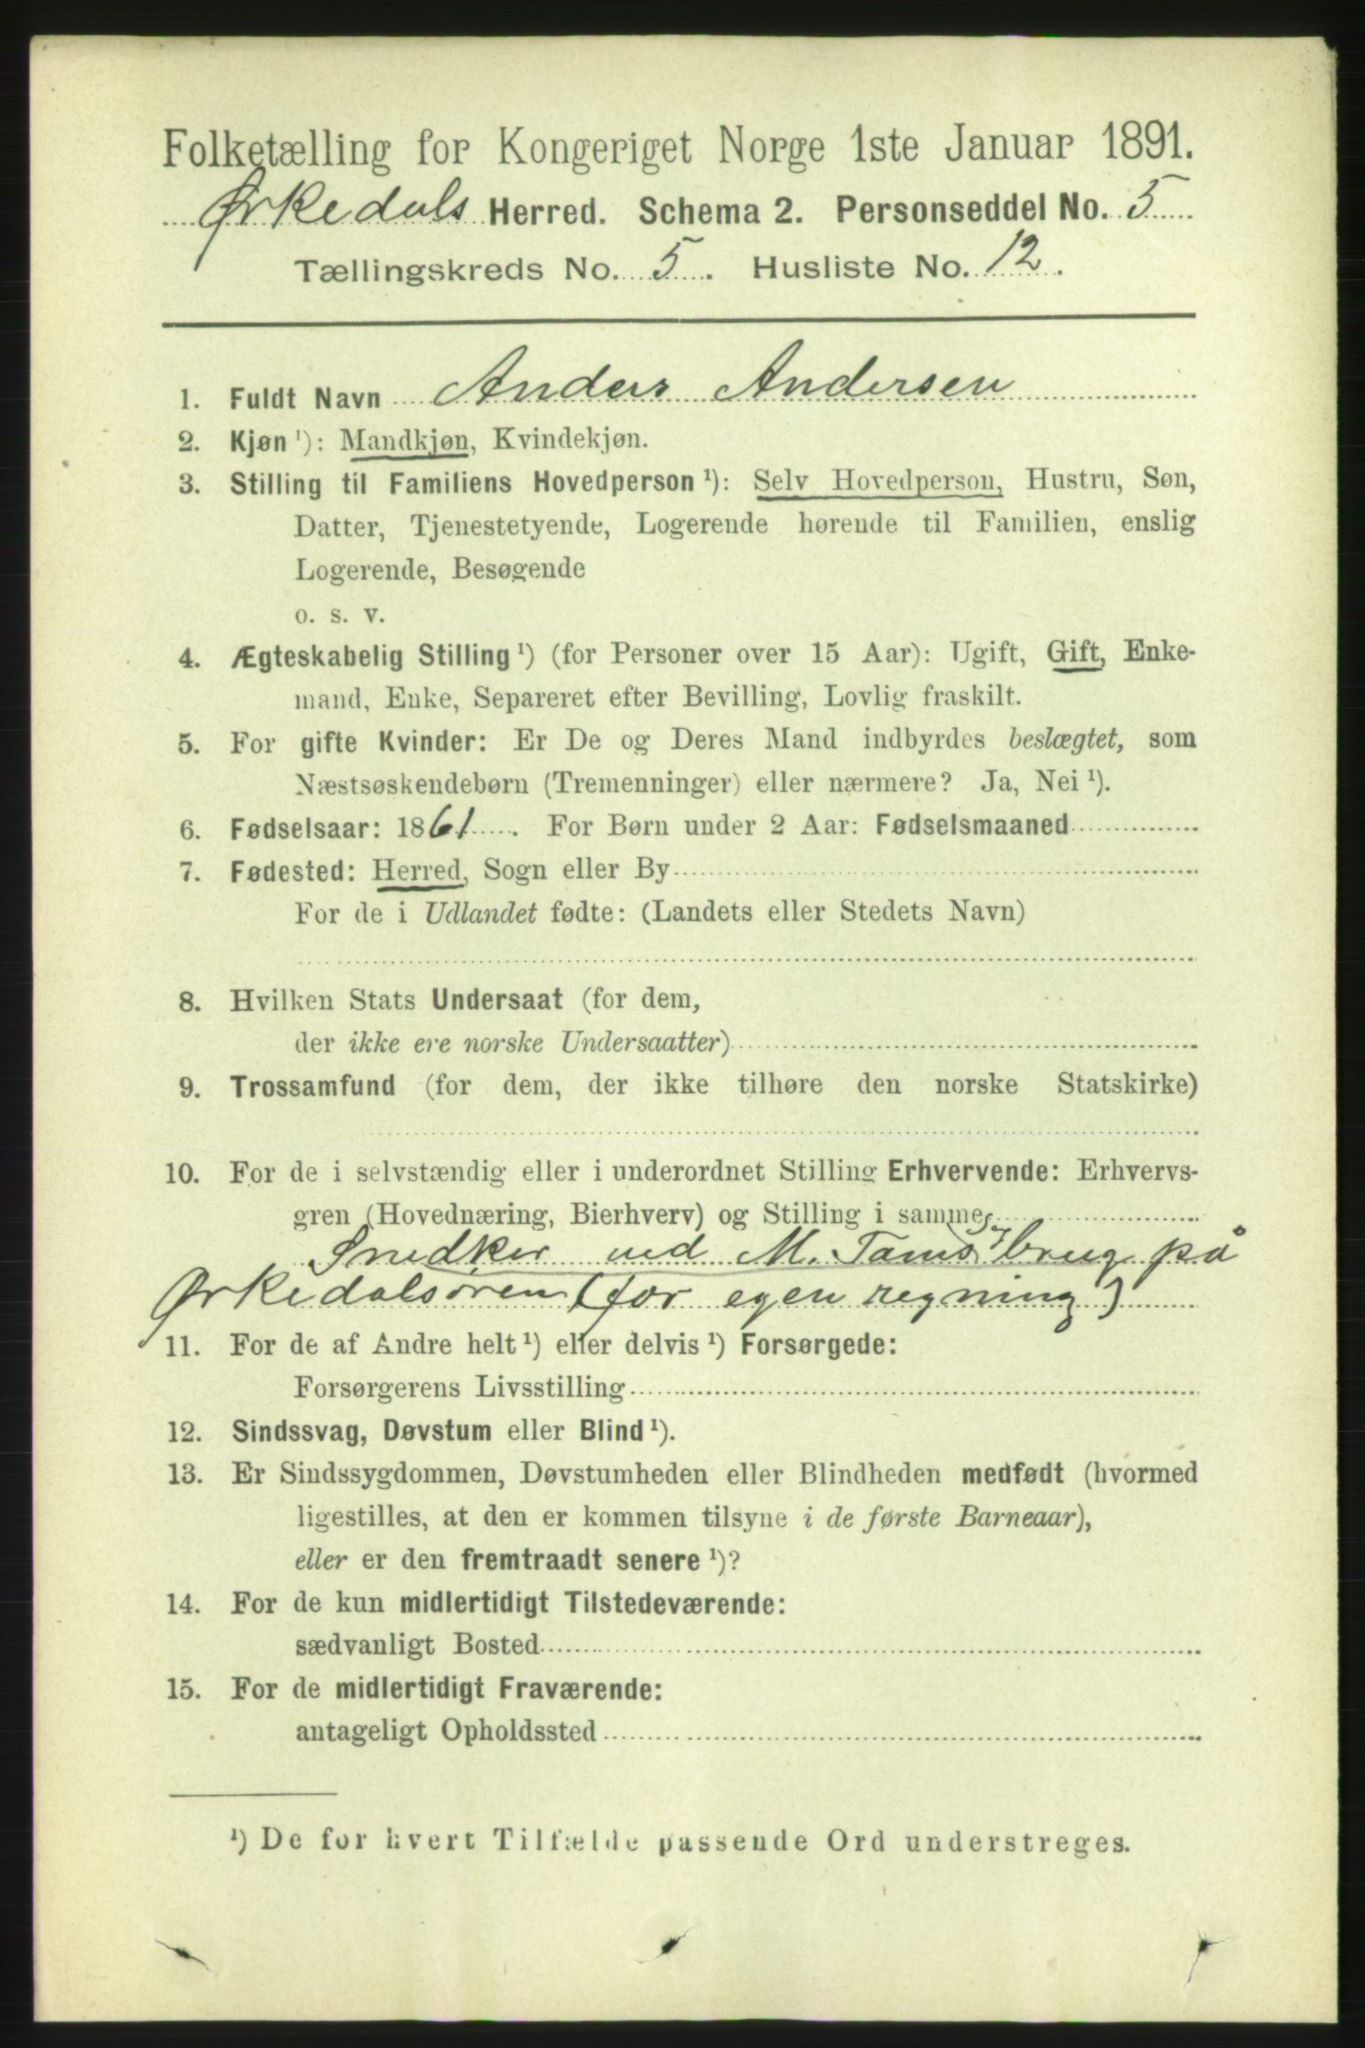 Folketælling for Kongeriget Norge 1ste Januar 1891.
Ørkedals Herred. Schema 2. Personseddel No. 5
Tællingskreds No. 5. Husliste No. 12.
1. Fuldt Navn Anders Andersen
2. Kjøn ¹): Mandkjøn, Kvindekjøn.
3. Stilling til Familiens Hovedperson ¹): Selv Hovedperson, Hustru, Søn,
Datter, Tjenestetyende, Logerende hørende til Familien, enslig
Logerende, Besøgende
o. s. v.
4. Ægteskabelig Stilling ¹) (for Personer over 15 Aar): Ugift, Gift, Enke-
mand, Enke, Separeret efter Bevilling, Lovlig fraskilt.
5. For gifte Kvinder: Er De og Deres Mand indbyrdes beslægtet, som
Næstsøskendebørn (Tremenninger) eller nærmere? Ja, Nei ¹).
6. Fødselsaar: 1861. For Børn under 2 Aar: Fødselsmaaned
7. Fødested: Herred, Sogn eller By
For de i Udlandet fødte: (Landets eller Stedets Navn)
8. Hvilken Stats Undersaat (for dem,
der ikke ere norske Undersaatter)
9. Trossamfund (for dem, der ikke tilhøre den norske Statskirke)
10. For de i selvstændig eller i underordnet Stilling Erhvervende: Erhvervs-
gren (Hovednæring, Bierhverv) og Stilling i samme
Snedker ved M. Tams brug på
Ørkedalsøren (for egen regning)
11. For de af Andre helt ¹) eller delvis ¹) Forsørgede:
Forsørgerens Livsstilling
12. Sindssvag, Døvstum eller Blind ¹).
13. Er Sindssygdommen, Døvstumheden eller Blindheden medfødt (hvormed
ligestilles, at den er kommen tilsyne i de første Barneaar),
eller er den fremtraadt senere ¹)?
14. For de kun midlertidigt Tilstedeværende:
sædvanligt Bosted
15. For de midlertidigt Fraværende:
antageligt Opholdssted
¹) De for hvert Tilfælde passende Ord understreges.